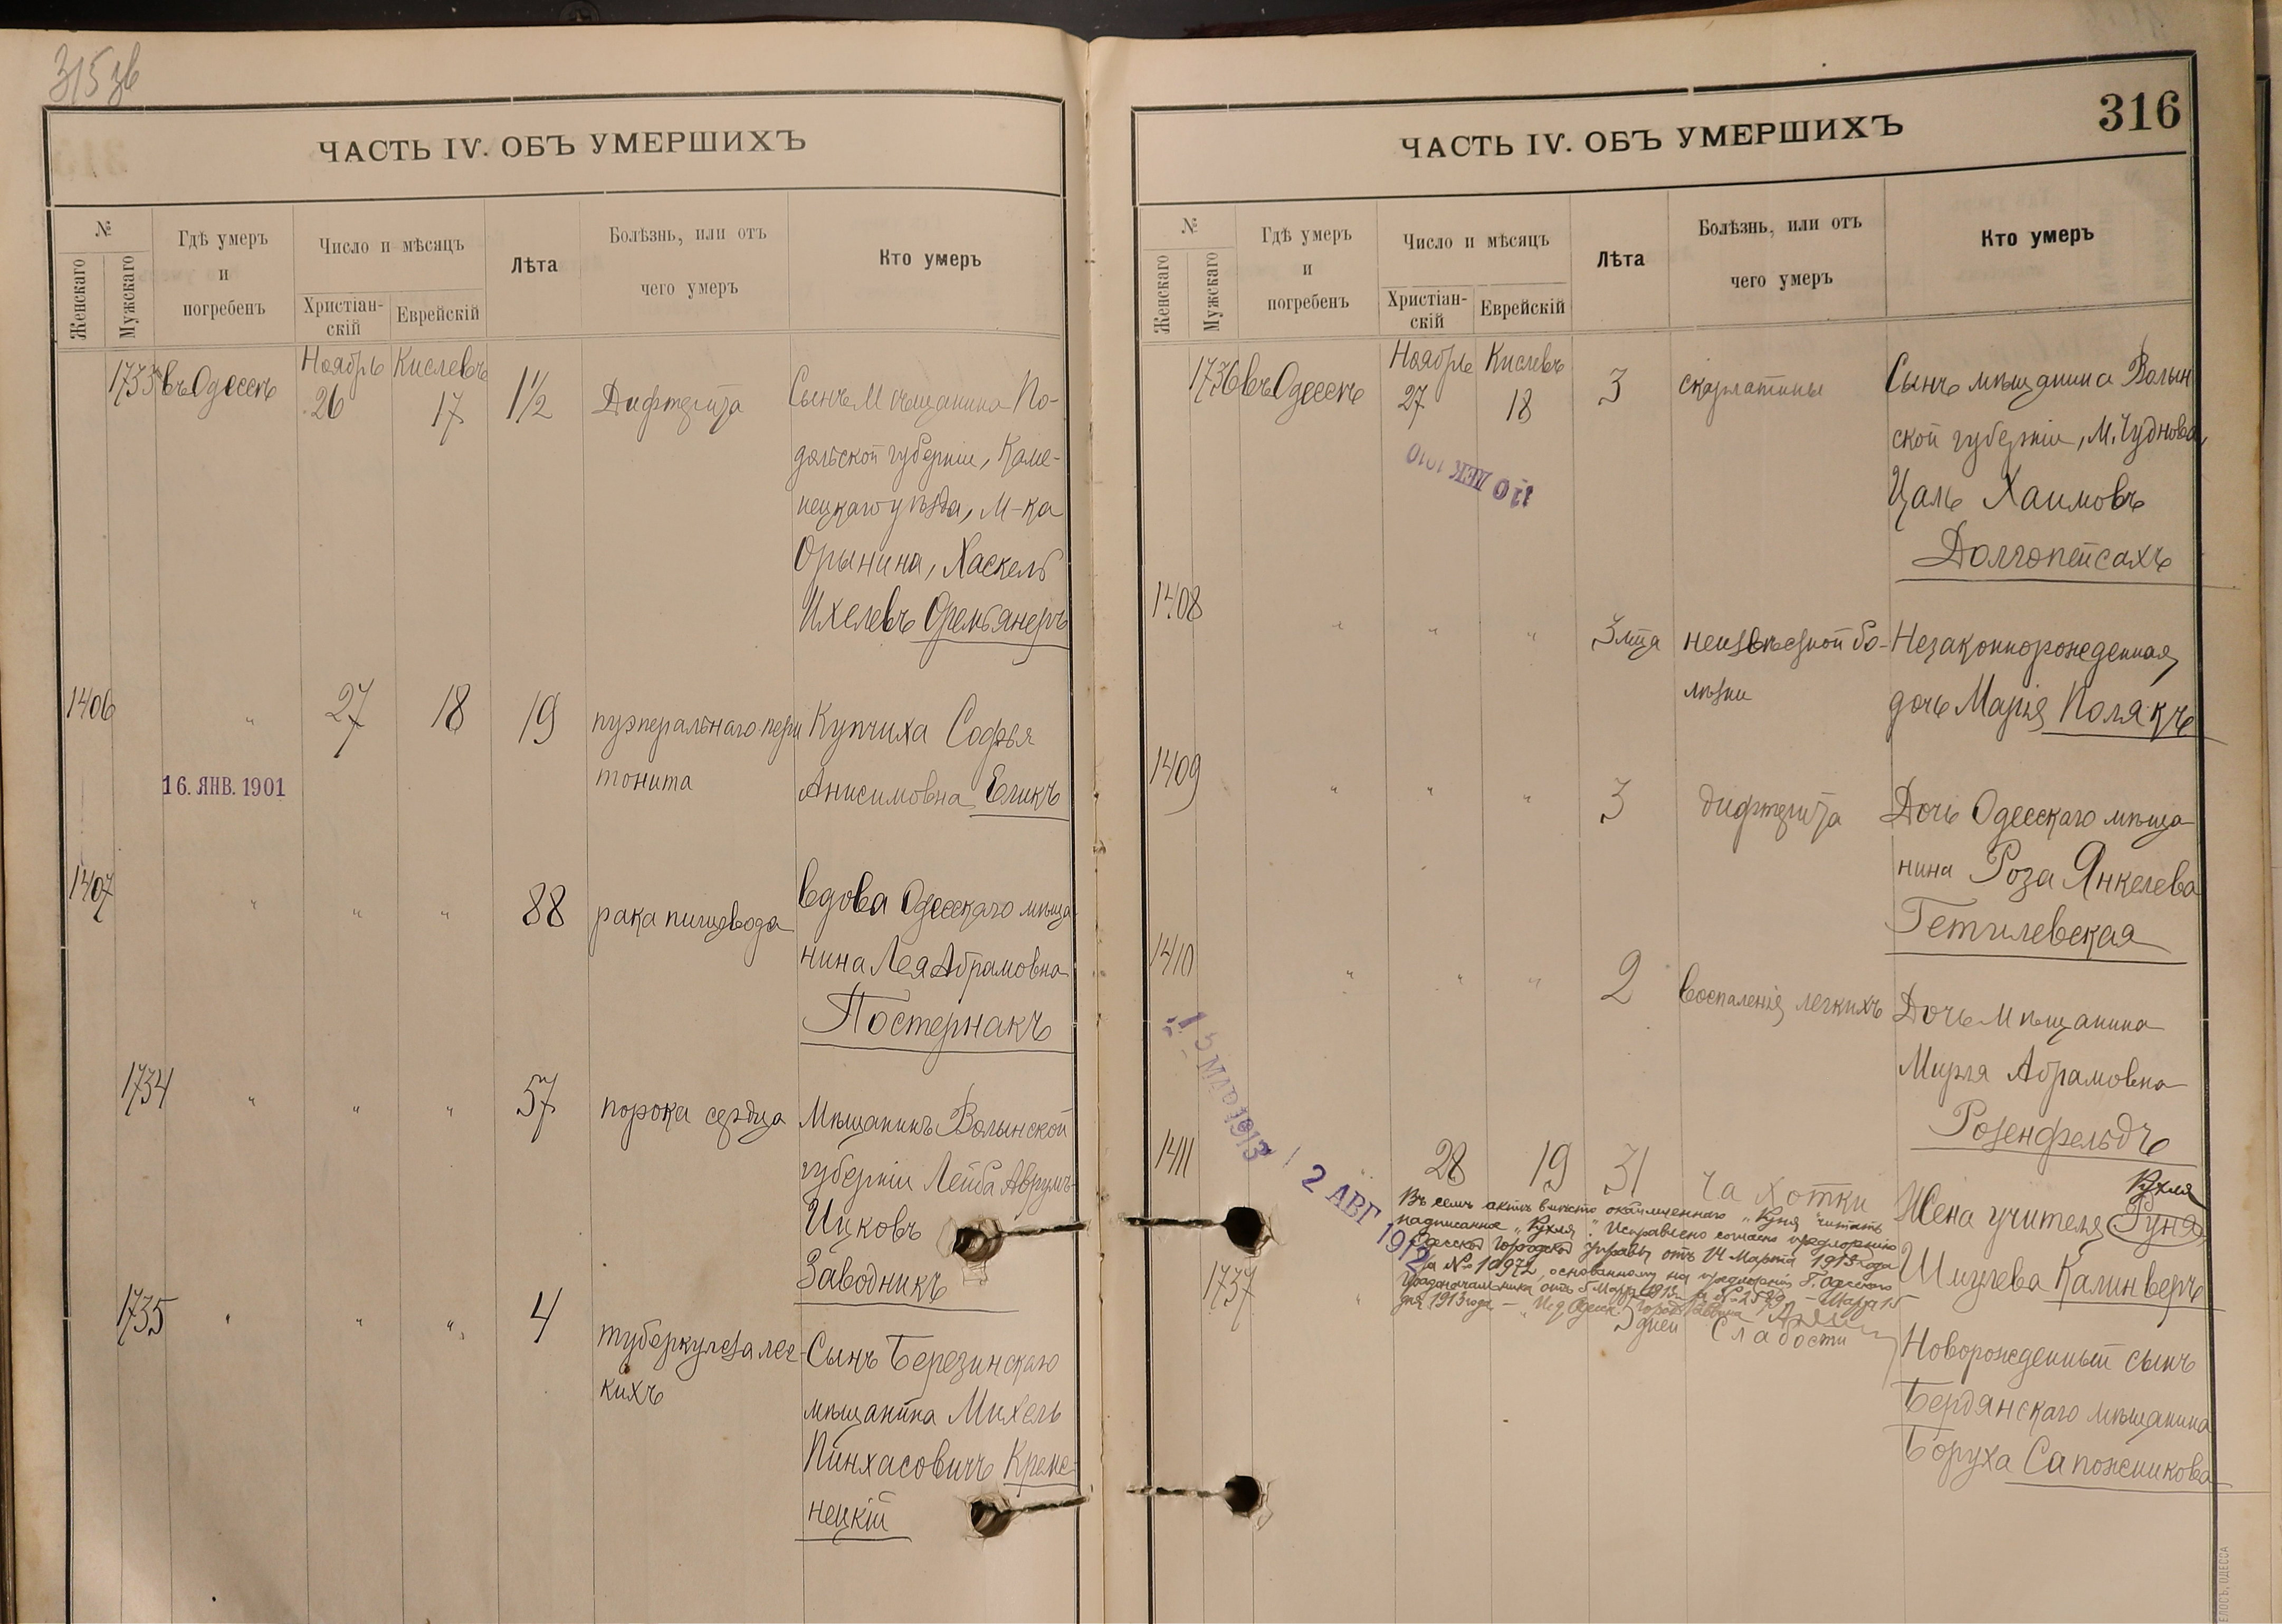 315 зв
ЧАСТЬ IV. ОБЪ УМЕРШИХЪ
№
Женскаго
Мужскаго
Гдѣ умеръ
и
погребенъ
Число и мѣсяцъ
Христіан-
скій
Еврейскій
Лѣта
Болѣзнь, или отъ
чего умеръ
Кто умеръ
1733 въ Одессѣ Ноябрь 26 Кислевъ 17 1½ Дифтерита Сынъ Мѣщанина По-
дольской губерніи, Каме-
нецкаго уѣзда, М-ка
Орынина, Хаскель
Ихелевъ
1406 " 27 18 19 пуэперальнаго пери Купчиха Софья
тонита Анисимовна Еликъ
16. ЯНВ. 1901
1407 " " " 88 рака пищевода Вдова Одесскаго мѣща
нина Лея Абрамовна
Постернакъ
1734 " " " 57 порока сердца Мѣщанинъ Волынской
губерніи Лейба Аврумъ-
Ицковъ
Заводникъ
1735 " " " 4 туберкулеза лег- Сынъ Березинскаго
кихъ мѣщанина Михель
Пинхасовичъ Креме-
нецкій
316
ЧАСТЬ IV. ОБЪ УМЕРШИХЪ
№
Женскаго
Мужскаго
Гдѣ умеръ
и
погребенъ
Число и мѣсяцъ
Христіан-
скій
Еврейскій
Лѣта
Болѣзнь, или отъ
чего умеръ
Кто умеръ
1736 въ Одессѣ Ноябрь 27 Кислевъ 18 3 скарлатины Сынъ мѣщанина Волын
ской губерніи, М. Чуднова,
Цаль Хаимовъ
Долгопейсахъ
10 ДЕК 1910
1408 " " " 3 мца неизвѣстной бо- Незаконнорожденная
лѣзни дочь Марія Полякъ
1409 " " " 3 дифтерита Дочь Одесскаго мѣща
нина Роза Янкелева
Гетилевская
1410 " " " 2 воспаленія легкихъ Дочь Мѣщанина
Мирля Абрамовна
Розенфельдъ
15 МАР 1913
2 АВГ 1912
1411 28 19 31 чахотки Жена учителя Руня
Рухля
Шмулева Калинверъ
Въ семъ актѣ вмѣсто окаймленнаго "Руня" читать
надписанное "Рухля". Исправлено согласно предложенію
Одесской Городской Управы отъ 14 Марта 1913 года
за № 10972, основанному на предложеніи Г. Одесскаго
Градоначальника отъ 5 Марта 1913 за № 2589 — Марта 15
дня 1913 года —
1737 " 5 дней Слабости Новорожденный сынъ
Бердянскаго мѣщанина
Боруха Сапожникова